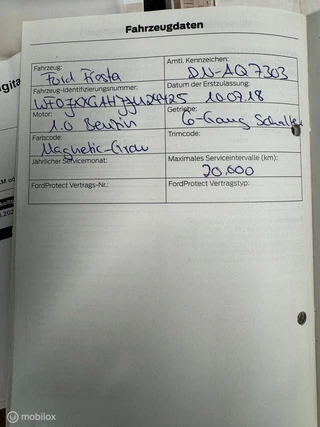 Fahrzeugdaten
Fahrzeug:
Ford Fiesta
Amtl. Kennzeichen:
DN-AQ 7303
Fahrzeug-Identifizierungsnummer:
Datum der Erstzulassung:
10.09.18
Motor:
1.0 Benzin
Getriebe:
6-Gang Schalter
Farbcode:
Magnetic-Grau
Trimcode:
Jährlicher Servicemonat:
Maximales Serviceintervalle (km):
20.000
FordProtect Vertrags-Nr.:
FordProtect Vertragstyp:
mobilox